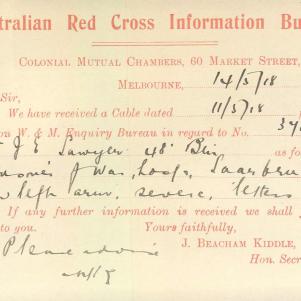 tralian Red Cross Information Bu
Colonial Mutual Chambers, 60 Market Street,
Melbourne, 14/5/18
Sir,
We have received a Cable dated 11/5/18
on W. & M. Enquiry Bureau in regard to No. 34
J E Sawyer 48' Bn as fo
War, hosp, Saarbru
left arm, severe, letters
If any further information is received we shall
to you. Yours faithfully,
Please advise J. Beacham Kiddle,
Hon. Secr